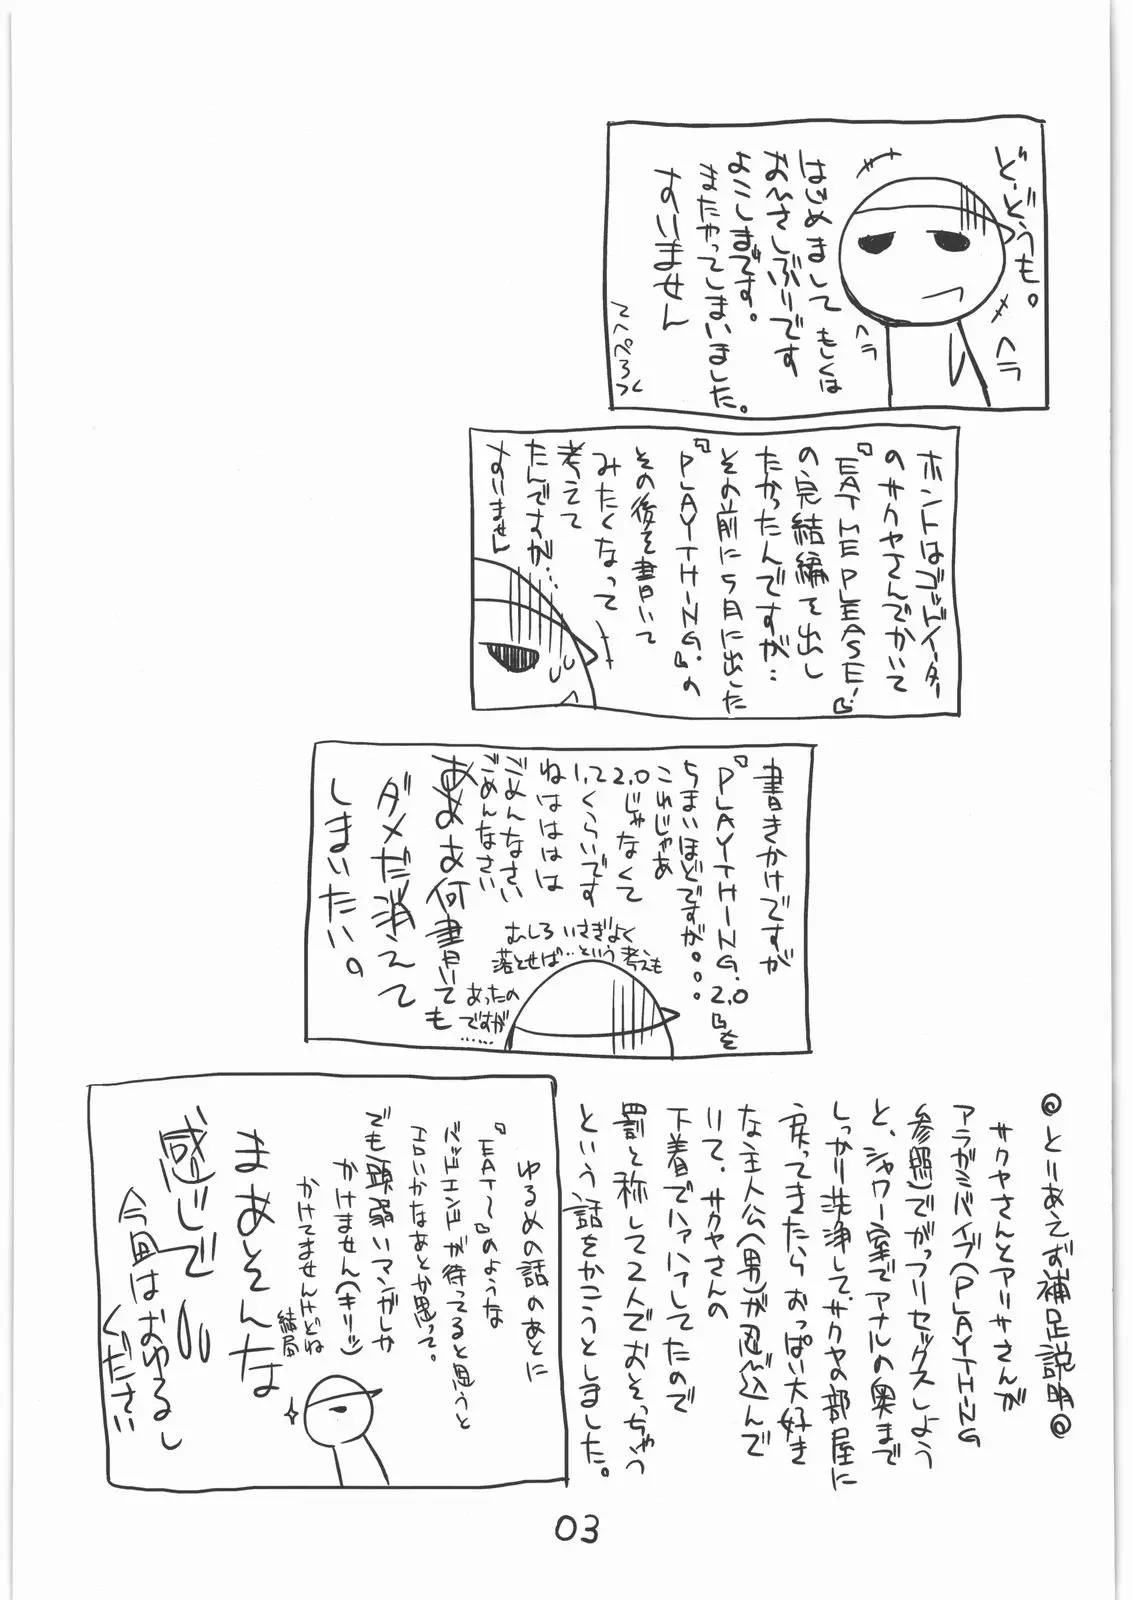 ど、どうも。
はじめまして もしくは
おひさしぶりです
よこしまです。
またやってしまいました。
すいません
ヘラ
ヘラ
ホントはゴッドイーター
のサクヤさんでかいて
『EAT ME PLEASE!』
の完結編を出し
たかったんですが…
その前に5月に出した
『PLAYTHING.』の
その後を書いて
みたくなって
考えて
たんですが…
すいません
書きかけですが
『PLAYTHING.2.0』を
うまいほどですが…
これじゃあ
2.0じゃなくて
1.てくらいです
ねはははは
ごめんなさい
ごめんなさい
ああぁ何書いても
ダメだ消えて
しまいたい。
むしろ いさぎよく
落とせば…という考えも
あったの
ですが
……
◎とりあえず補足説明◎
サクヤさんとアリサさんが
アラガミバイブ(PLAYTHING
参照)でがっつりセックスしよう
と、シャワー室でアナルの奥まで
しっかり洗浄して、サクヤの部屋に
戻ってきたら おっぱい大好き
な主人公(男)が忍び込んで
いて、サクヤさんの
下着でハァハァしてたので
罰と称して2人でおそっちゃう
という話をかこうとしました。
ゆるめの話のあとに
『EAT〜』のような
バッドエンドが待ってると思うと
エロいかなあとか思って。
でも頭弱いマンガしか
かけません(キリッ)
かけてませんけどね
結局
まあそんな
感じで
今回はおゆるし
ください
03